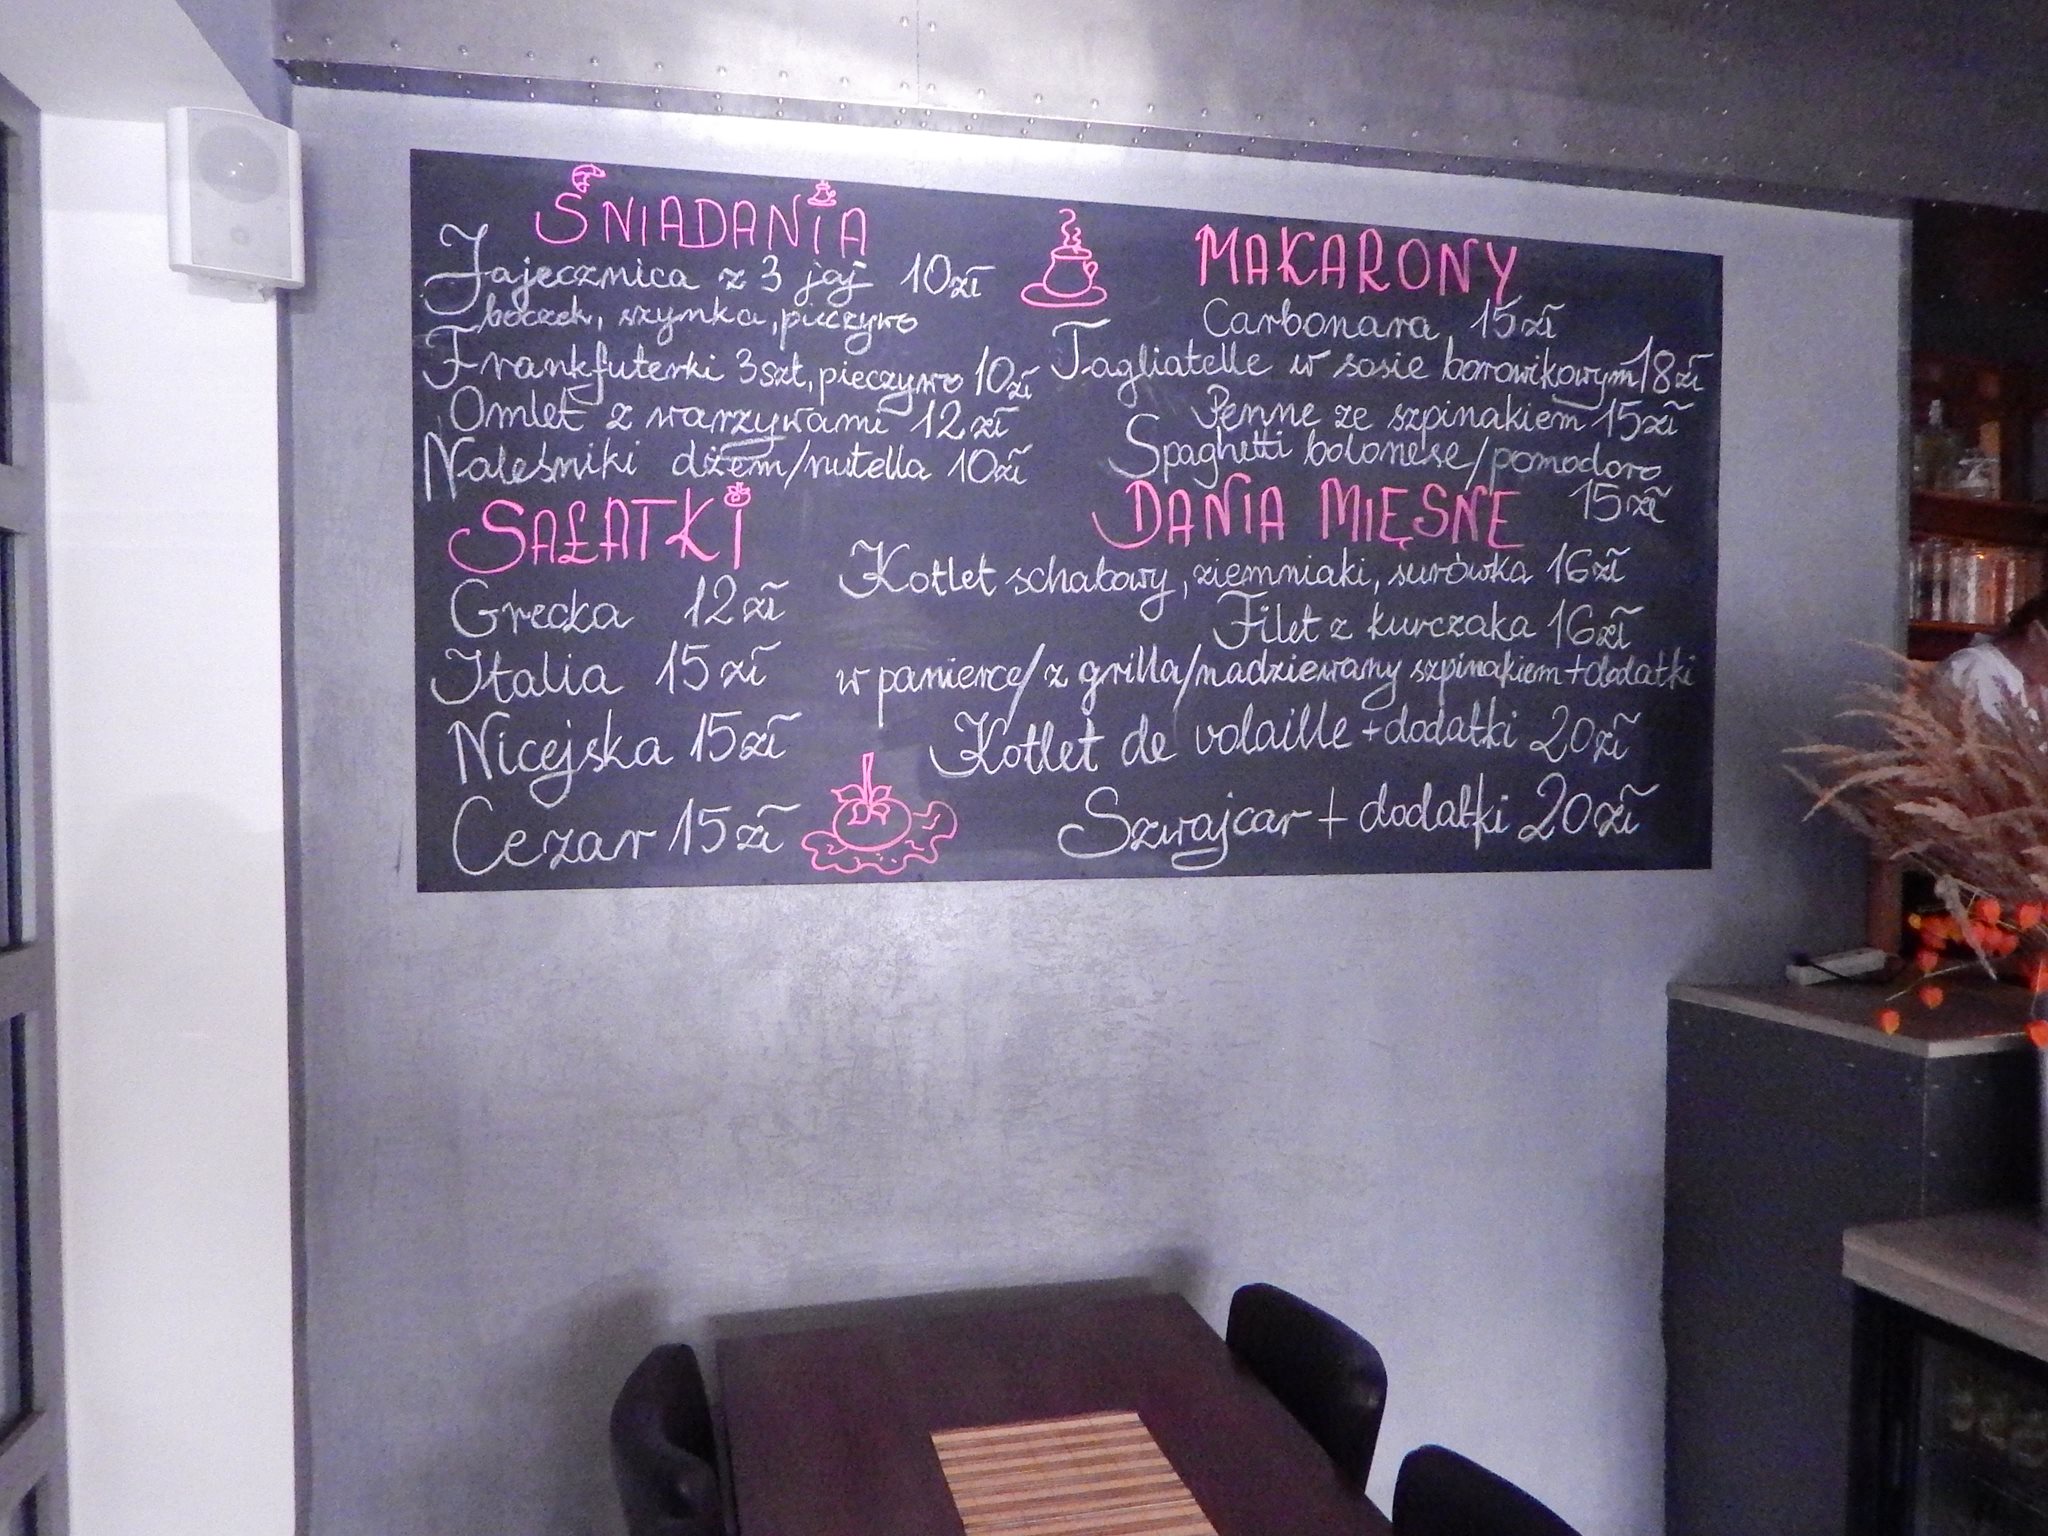 ŚNIADANIA
Jajecznica z 3 jaj 10zł
boczek, szynka, pieczywo
Frankfuterki 3szt, pieczywo 10zł
Omlet z warzywami 12zł
Naleśniki dżem/nutella 10zł
SAŁATKI
Grecka 12zł
Italia 15zł
Nicejska 15zł
Cezar 15zł
MAKARONY
Carbonara 15zł
Tagliatelle w sosie borowikowym 18zł
Penne ze szpinakiem 15zł
Spaghetti bolonese/pomodoro
15zł
DANIA MIĘSNE
Kotlet schabowy, ziemniaki, surówka 16zł
Filet z kurczaka 16zł
w panierce/z grilla/nadziewany szpinakiem+dodatki
Kotlet de volaille +dodatki 20zł
Szwajcar + dodatki 20zł